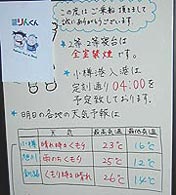 この度は、ご乗船頂きまして
誠にありがとうございます。
りんくん
2等、2等寝台は
全室禁煙です。
小樽港入港は、
定刻通り04:00を
予定致しております。
明日の各地の天気予報は
天気 最高気温 最低気温
小樽 晴れ時々くもり 23℃ 16℃
旭川 雨のちくもり 25℃ 12℃
くもり時々晴れ 26℃ 14℃